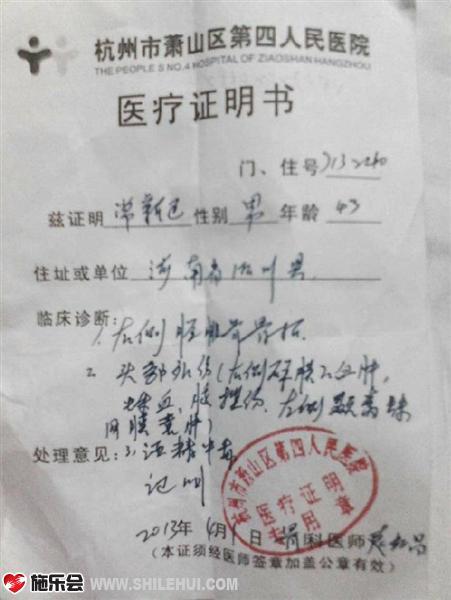 杭州市萧山区第四人民医院
THE PEOPLE S NO.4 HOSPITAL OF ZIAOSHAN HANGZHOU
医疗证明书
门、住号
兹证明 常新 性别 男 年龄 43
住址或单位 河南省淅川县
临床诊断:
1、左侧胫腓骨骨折
2、头部外伤(左侧硬膜下血肿,
左侧颞蛛
网膜囊肿)
处理意见: 3、酒精中毒
杭州市萧山区第四人民医院
医疗证明
专用章
2013年4月1日 骨科医师
(本证须经医师签章加盖公章有效)
施乐会 WWW.SHILEHUI.COM